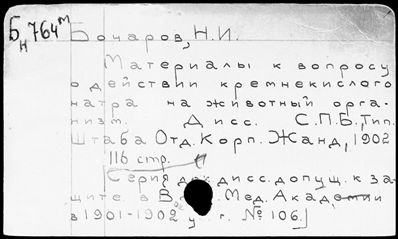 Б
н 764м
Бочаров, Н.И.
Материалы к вопросу
о действии кремнекислого
натра на животный орга-
низм. Дисс. С.П.Б., Тип.
Штаба Отд. Корп. Жанд, 1902
116 стр.
[Серия дисс. допущ. к за-
щите в В. Мед. Академии
в 1901-1902 у г. № 106.]